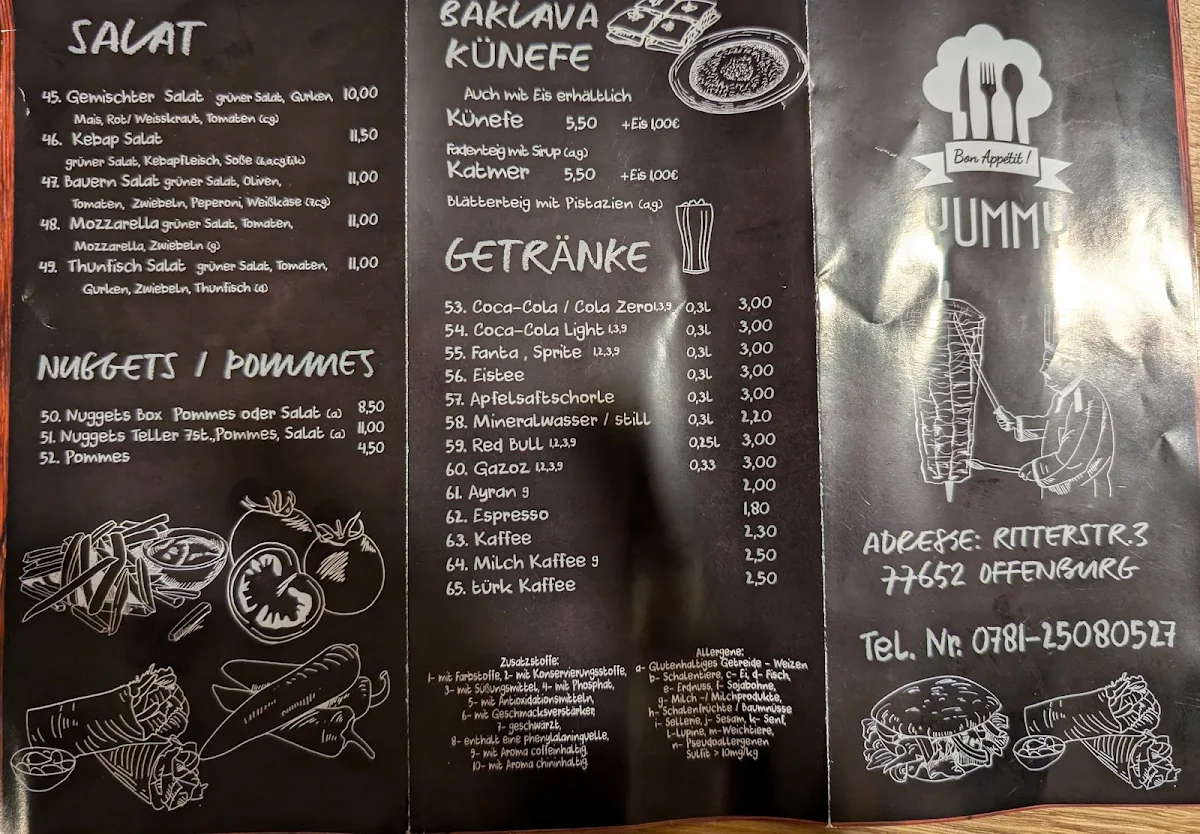 SALAT
45. Gemischter Salat grüner Salat, Gurken 10,00
Mais, Rot/ Weisskraut, Tomaten (c,g)
46. Kebap Salat 11,50
grüner Salat, Kebapfleisch, Soße
47. Bauern Salat grüner Salat, Oliven, 11,00
Tomaten, Zwiebeln, Peperoni, Weißkäse (7,c,g)
48. Mozzarella grüner Salat, Tomaten, 11,00
Mozzarella, Zwiebeln (g)
49. Thunfisch Salat grüner Salat, Tomaten, 11,00
Gurken, Zwiebeln, Thunfisch (d)
NUGGETS / POMMES
50. Nuggets Box Pommes oder Salat (a) 8,50
51. Nuggets Teller 7st.,Pommes, Salat (a) 11,00
52. Pommes 4,50
BAKLAVA
KÜNEFE
Auch mit Eis erhältlich
Künefe 5,50 +Eis 1,00€
Fadenteig mit Sirup (a,g)
Katmer 5,50 +Eis 1,00€
Blätterteig mit Pistazien (a,g)
GETRÄNKE
53. Coca-Cola / Cola Zero 1,3,9 0,3L 3,00
54. Coca-Cola Light 1,3,9 0,3L 3,00
55. Fanta , Sprite 1,2,3,9 0,3L 3,00
56. Eistee 0,3L 3,00
57. Apfelsaftschorle 0,3L 3,00
58. Mineralwasser / still 0,3L 2,20
59. Red Bull 1,2,3,9 0,25L 3,00
60. Gazoz 1,2,3,9 0,33 3,00
61. Ayran g 2,00
62. Espresso 1,80
63. Kaffee 2,30
64. Milch Kaffee g 2,50
65. türk Kaffee 2,50
Zusatzstoffe:
1- mit Farbstoffe, 2- mit Konservierungsstoffe,
3- mit Süßungsmittel, 4- mit Phosphat,
5- mit Antioxidationsmitteln,
6- mit Geschmacksverstärker,
7- geschwärzt,
8- enthält eine phenylalaninquelle,
9- mit Aroma coffeinhaltig,
10- mit Aroma chininhaltig
Allergene:
a- Glutenhaltiges Getreide - Weizen
b- Schalentiere, c- Ei, d- Fisch,
e- Erdnuss, f- Sojabohne,
g- Milch -/ Milchprodukte,
h- Schalenfrüchte / baumnüsse
i- Sellerie, j- Sesam, k- Senf,
l-Lupine, m-Weichtiere,
n- Pseudoallergenen
Sulfit > 10mg/kg
Bon Appétit !
YUMMY
ADRESSE: RITTERSTR.3
77652 OFFENBURG
Tel. Nr. 0781-25080527